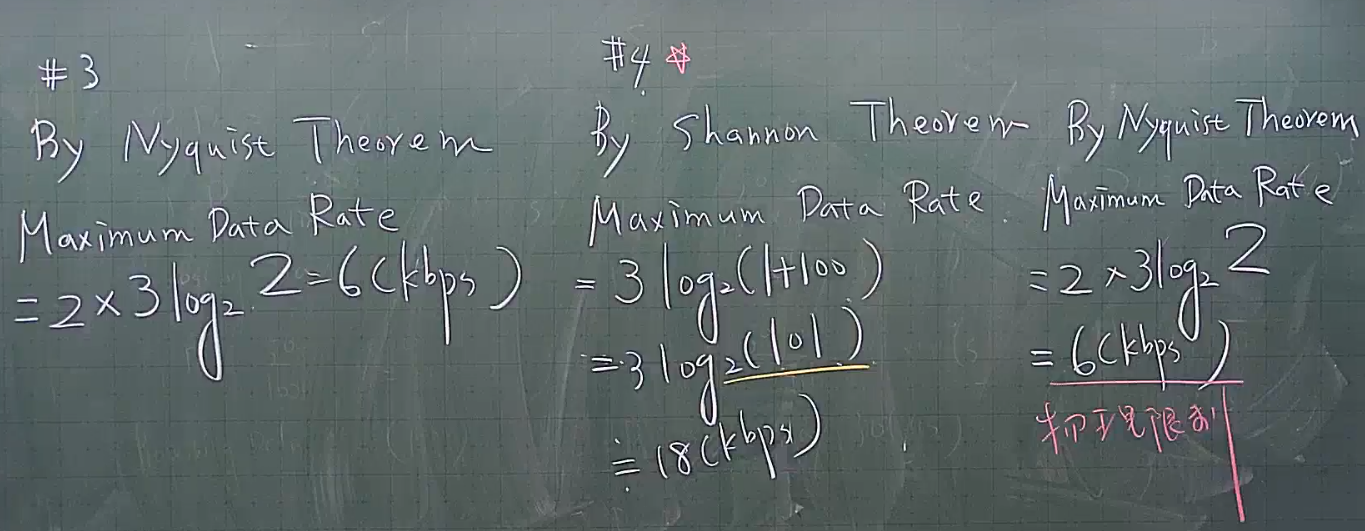 #3
By Nyquist Theorem
Maximum Data Rate
=2×3log₂2=6(kbps)
#4 ☆
By Shannon Theorem
Maximum Data Rate
=3log₂(1+100)
=3log₂(101)
≒18(kbps)
By Nyquist Theorem
Maximum Data Rate
=2×3log₂2
=6(kbps)
物理限制